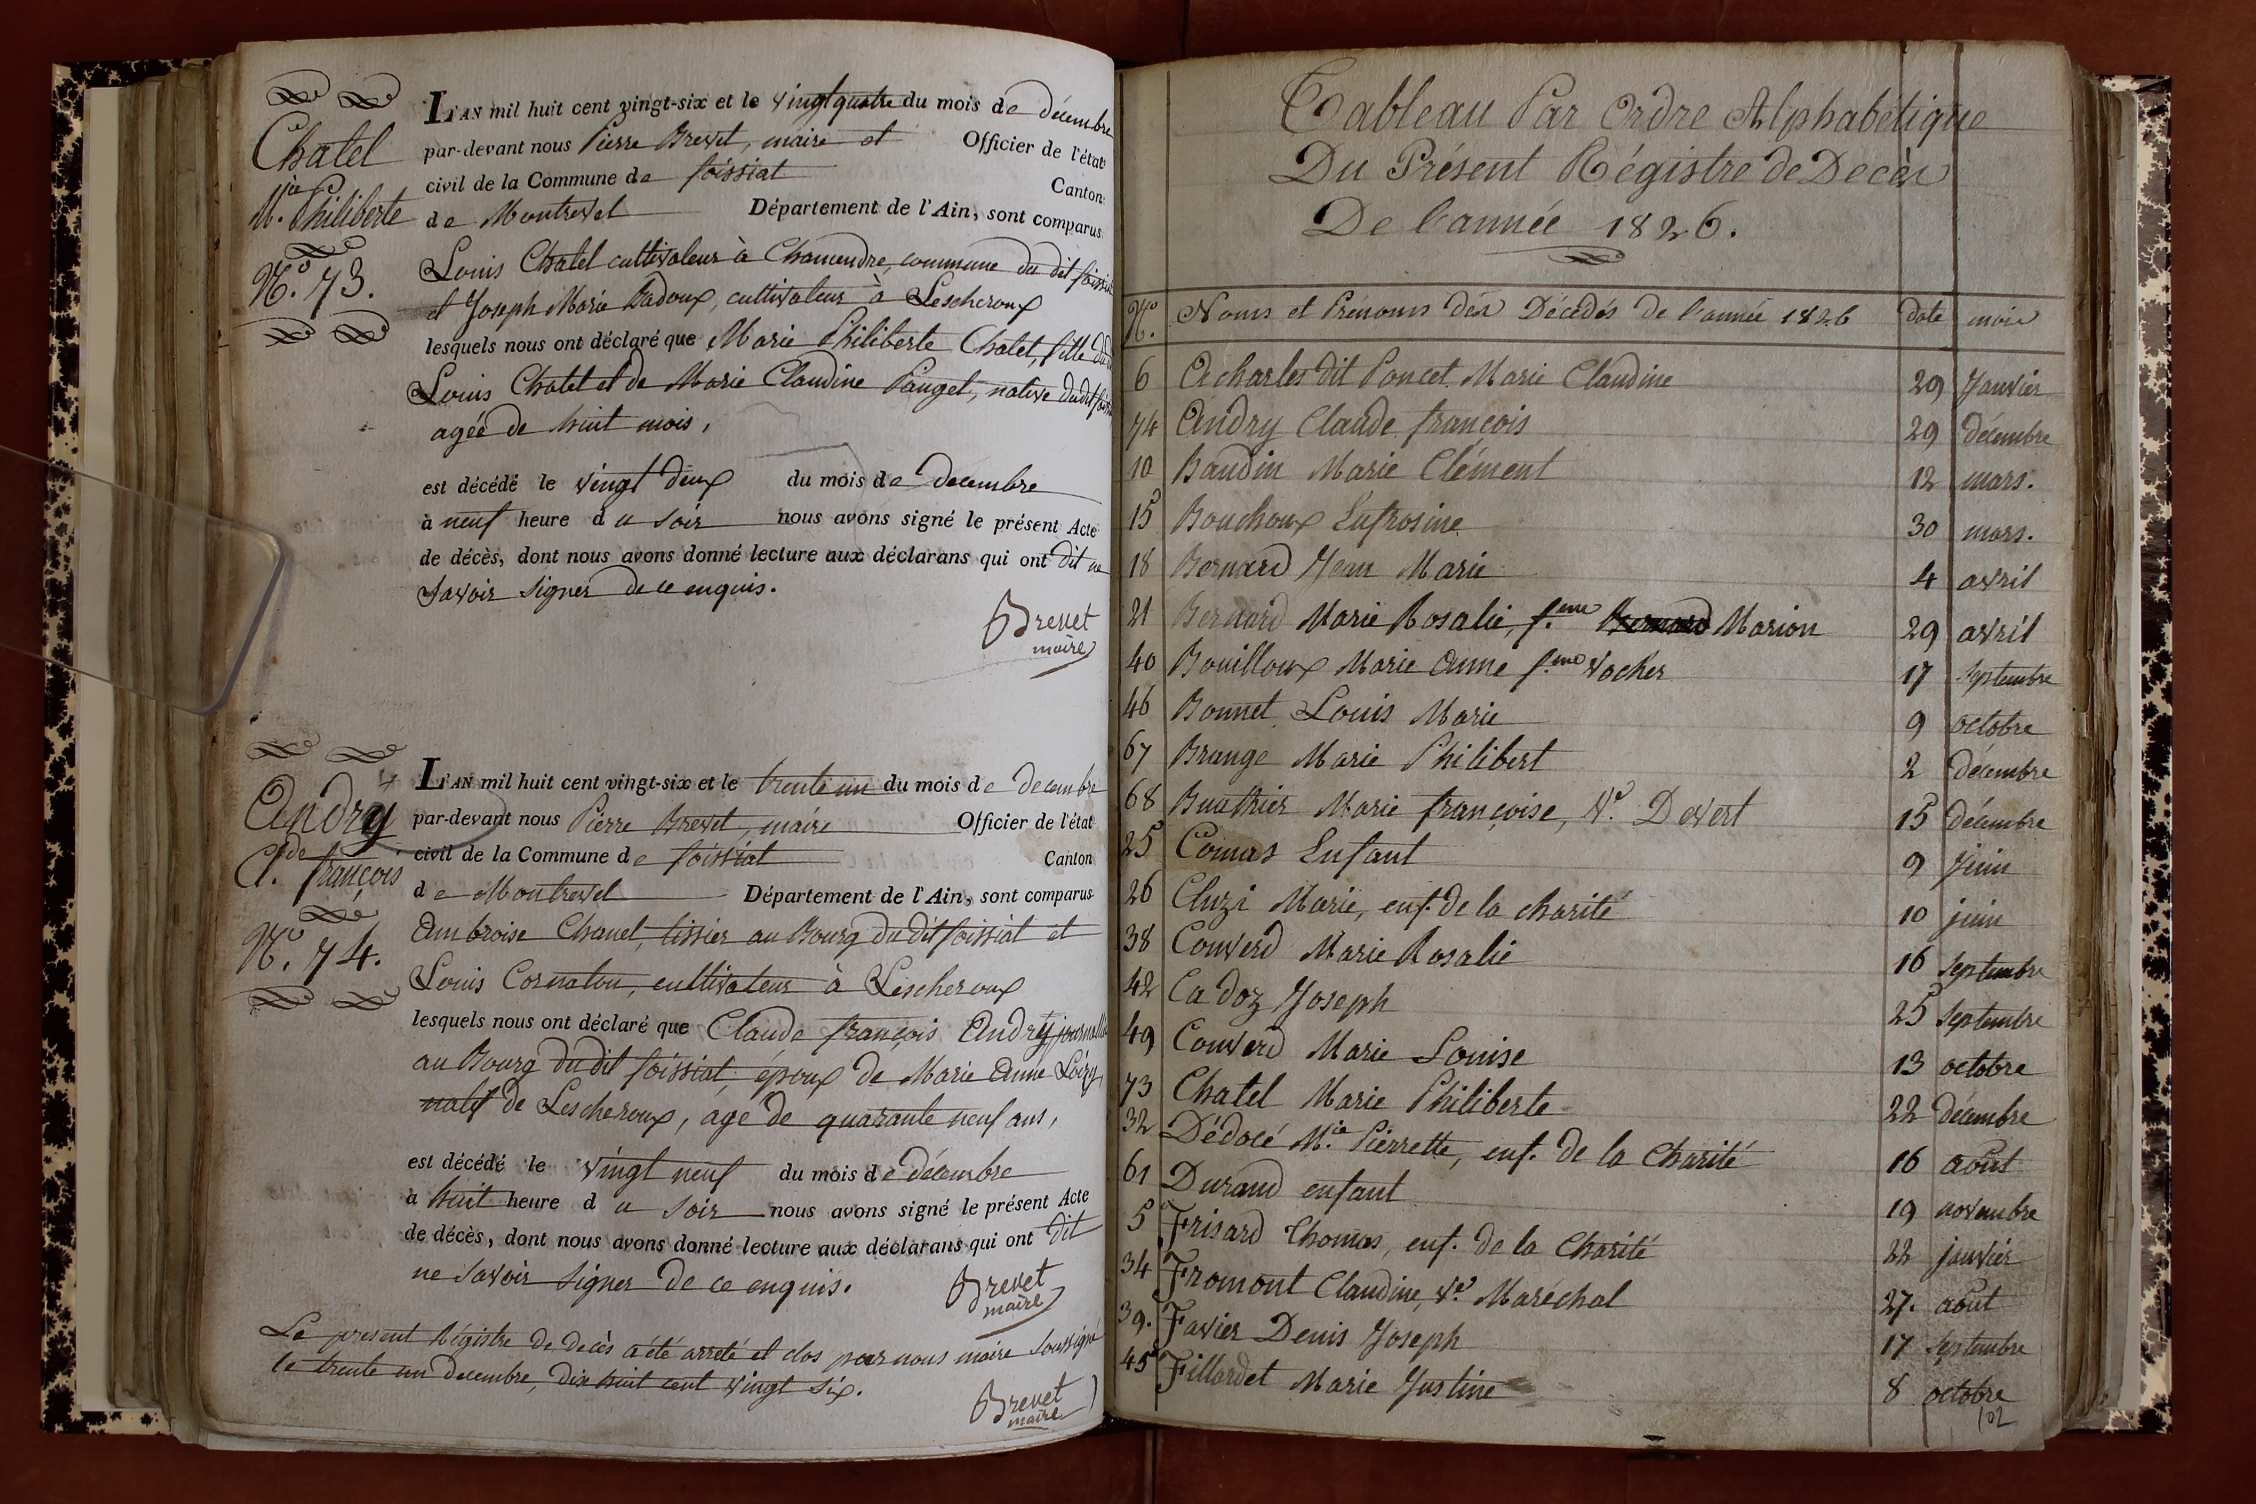 Chatel
M.ie Philiberte
N.o 73.
L'AN mil huit cent vingt-six et le vingt quatre du mois de décembre
par-devant nous Pierre Brevet, maire et Officier de l'état
civil de la Commune de foissiat Canton
de Montrevel Département de l'Ain, sont comparus
Louis Chatel cultivateur à Chamendre, commune du dit foissiat
et Joseph Marie Badoux, cultivateur à Lescheroux
lesquels nous ont déclaré que Marie Philiberte Chatel, fille dudit
Louis Chatel et de Marie Claudine Pauget, native dudit foissiat
agée de huit mois,
est décédé le vingt deux du mois de decembre
à neuf heure du soir nous avons signé le présent Acte
de décès, dont nous avons donné lecture aux déclarans qui ont dit ne
Savoir signer de ce enquis.
Brevet
maire
Andry
Cl.de françois
N.o 74.
L'AN mil huit cent vingt-six et le trente un du mois de decembre
par-devant nous Pierre Brevet, maire Officier de l'état
civil de la Commune de foissiat Canton
de Montrevel Département de l'Ain, sont comparus
Ambroise Chanel, tissier au Bourg du dit foissiat et
Louis Cornaton, cultivateur à Lescheroux
lesquels nous ont déclaré que Claude françois Andry, journallier
au Bourg du dit foissiat époux de Marie Anne Loizy,
natif de Lescheroux, agé de quarante neuf ans,
est décédé le vingt neuf du mois de décembre
à huit heure du soir nous avons signé le présent Acte
de décès, dont nous avons donné lecture aux déclarans qui ont dit
ne savoir signer de ce enquis.
Brevet
maire
Le present Régistre de decès a été arreté et clos par nous maire soussigné
le trente un decembre, dix huit cent vingt six.
Brevet
maire
Tableau Par Ordre Alphabétique
Du Présent Régistre de Decès
De l'année 1826.
N.o Noms et Prénoms des Décédés de l'année 1826 date mois
6 Acharles dit Poncet Marie Claudine 29 Janvier
74 Andry Claude françois 29 décembre
10 Baudin Marie Clément 12 mars.
15 Bouchoux Eufrosine 30 mars.
18 Bernard Jean Marie 4 avril
21 Bernard Marie Rosalie, f.eme Bernard Marion 29 avril
40 Bouilloux Marie Anne f.eme Vocher 17 septembre
46 Bonnet Louis Marie 9 octobre
67 Brange Marie Philibert 2 décembre
68 Buathier Marie françoise, V.e Devert 15 décembre
25 Comas Enfant 9 juin
26 Cluzi Marie, enf. de la charité 10 juin
38 Converd Marie Rosalie 16 septembre
42 Cadoz Joseph 25 septembre
49 Converd Marie Louise 13 octobre
73 Chatel Marie Philiberte 22 décembre
32 Dédocé M.ie Pierrette, enf. de la Charité 16 août
61 Durand enfant 19 novembre
5 Frisard Thomas, enf. de la Charité 22 janvier
34 Fromont Claudine, V.e Maréchal 27. août
39. Favier Denis Joseph 17 septembre
45 Fillardet Marie Justine 8 octobre
102